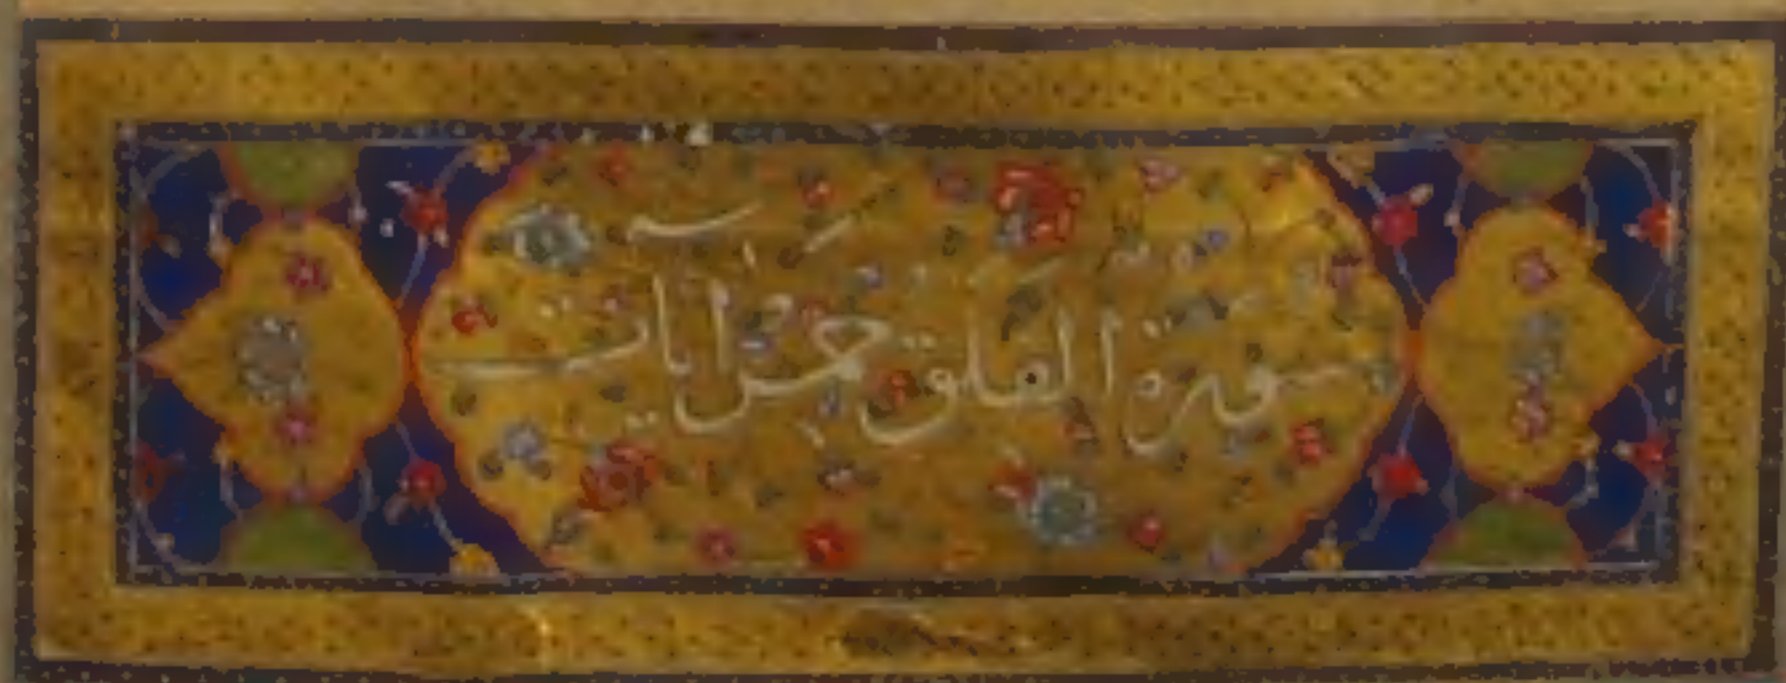 سورة الفلق خمس آيات